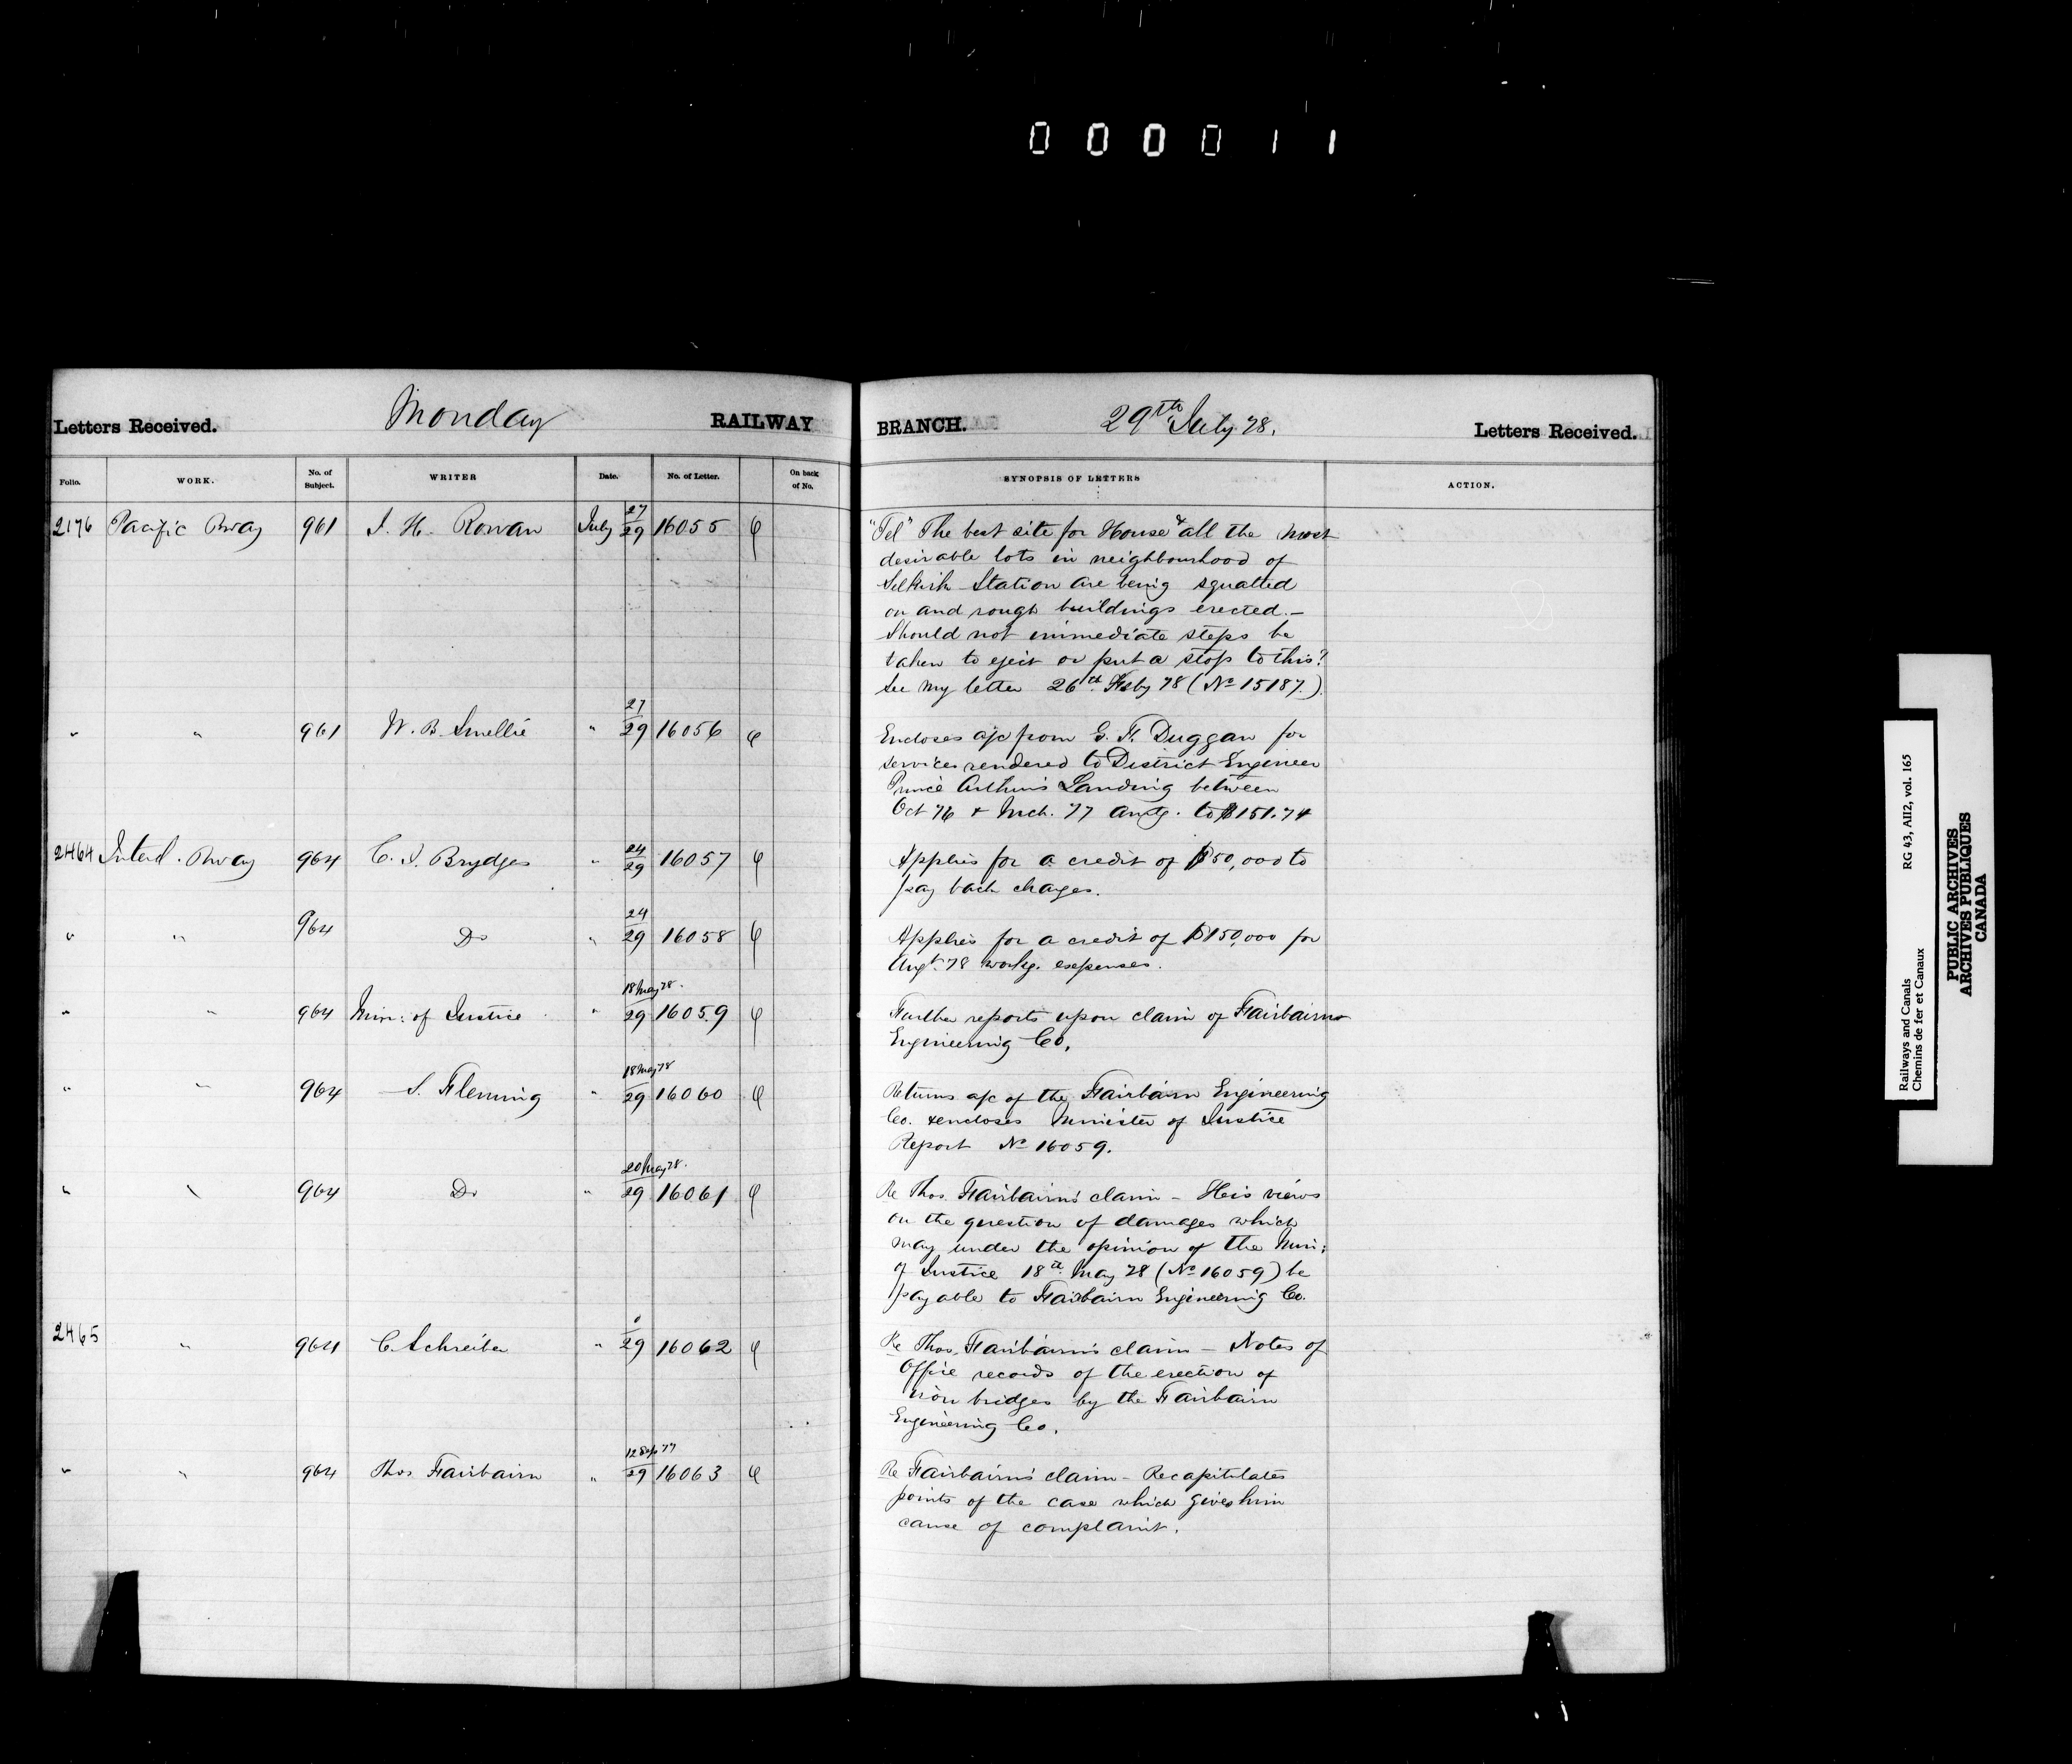 000011
Letters Received. Monday RAILWAY BRANCH. 29th July 78. Letters Received.
Folio. WORK. No. of Subject. WRITER Date. No. of Letter. On back of No. SYNOPSIS OF LETTERS ACTION.
2176 Pacific Rway 961 J. H. Rowan July 27/29 16055 "Tel" The best site for House & all the most
desirable lots in neighbourhood of
Selkirk Station are being squatted
on and rough buildings erected.-
Should not immediate steps be
taken to eject or put a stop to this?
See my letter 26th Feby 78 (No 15187.)
" " 961 W. B. Smellie " 27/29 16056 Encloses a/c from G. F. Duggan for
services rendered to District Engineer
Prince Arthur's Landing between
Oct 76 & Mch. 77 amtg. to $151.74
2464 Intercl. Rway 964 C. J. Brydges " 24/29 16057 Applies for a credit of $50,000 to
pay back charges.
" " 964 Do " 24/29 16058 Applies for a credit of $150,000 for
Augt. 78 workg. expenses.
" " 964 Min: of Justice " 18 May 78./29 16059 Further reports upon claim of Fairbairns
Engineering Co.
" " 964 S. Fleming " 18 May 78/29 16060 Returns a/c of the Fairbairn Engineering
Co. & encloses Minister of Justice
Report No 16059.
" " 964 Do " 20 May 78./29 16061 Re Thos. Fairbairn's claim - His views
on the question of damages which
may under the opinion of the Min:
of Justice 18th May 78 (No 16059) be
payable to Fairbairn Engineering Co.
2465 " 964 C. Schreiber " 0/29 16062 Re Thos. Fairbairn's claim - Notes of
Office records of the erection of
iron bridges by the Fairbairn
Engineering Co.
" " 964 Thos Fairbairn " 12 Sep 77/29 16063 Re Fairbairn's claim - Recapitulates
points of the case which gives him
cause of complaint.
Railways and Canals RG 43, AII2, vol. 165
Chemins de fer et Canaux
PUBLIC ARCHIVES
ARCHIVES PUBLIQUES
CANADA